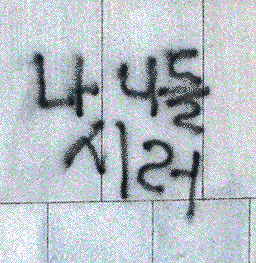 나 너를
시러